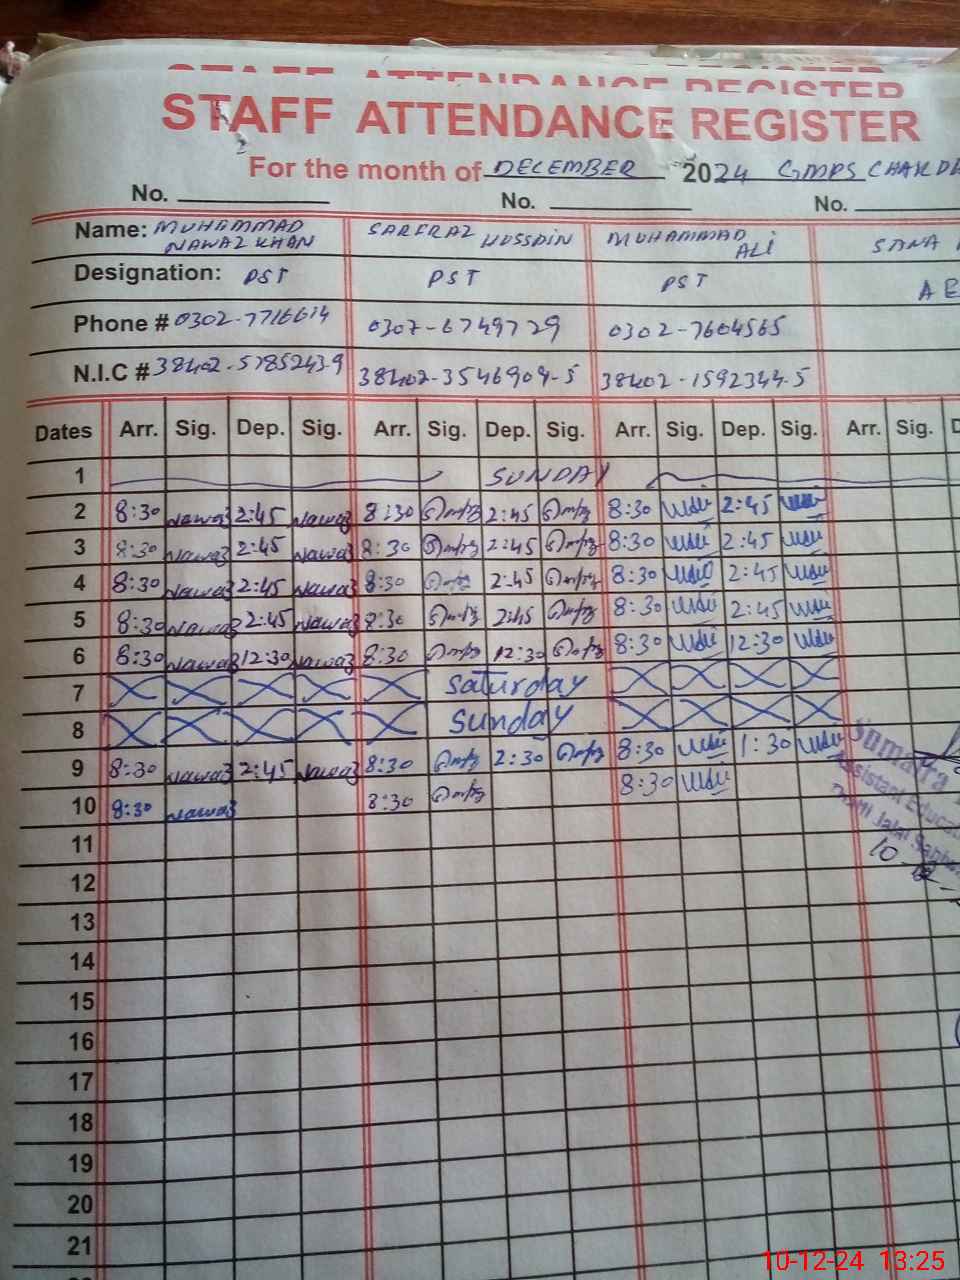 STAFF ATTENDANCE REGISTER
STAFF ATTENDANCE REGISTER
For the month of DECEMBER 2024 GMPS
No. No. No.
Name: MUHAMMAD NAWAZ KHAN SARFRAZ HUSSAIN MUHAMMAD ALi SANA
Designation: PST PST PST
Phone # 0302-7716614 0307-6749729 0302-7604565
N.I.C # 38402-5785243-9 38402-3546909-5 38402-1592344-5
Dates Arr. Sig. Dep. Sig. Arr. Sig. Dep. Sig. Arr. Sig. Dep. Sig. Arr. Sig.
1 SUNDAY
2 8:30 Nawaz 2:45 Nawaz 8:30 2:45 8:30 2:45
3 8:30 Nawaz 2:45 Nawaz 8:30 2:45 8:30 2:45
4 8:30 Nawaz 2:45 Nawaz 8:30 2:45 8:30 2:45
5 8:30 Nawaz 2:45 Nawaz 8:30 2:45 8:30 2:45
6 8:30 Nawaz 12:30 Nawaz 8:30 12:30 8:30 12:30
7 Saturday
8 Sunday
9 8:30 Nawaz 2:45 Nawaz 8:30 2:30 8:30 1:30
10 8:30 Nawaz 8:30 8:30
Assistant Educat
11
12
13
14
15
16
17
18
19
20
21
10-12-24 13:25